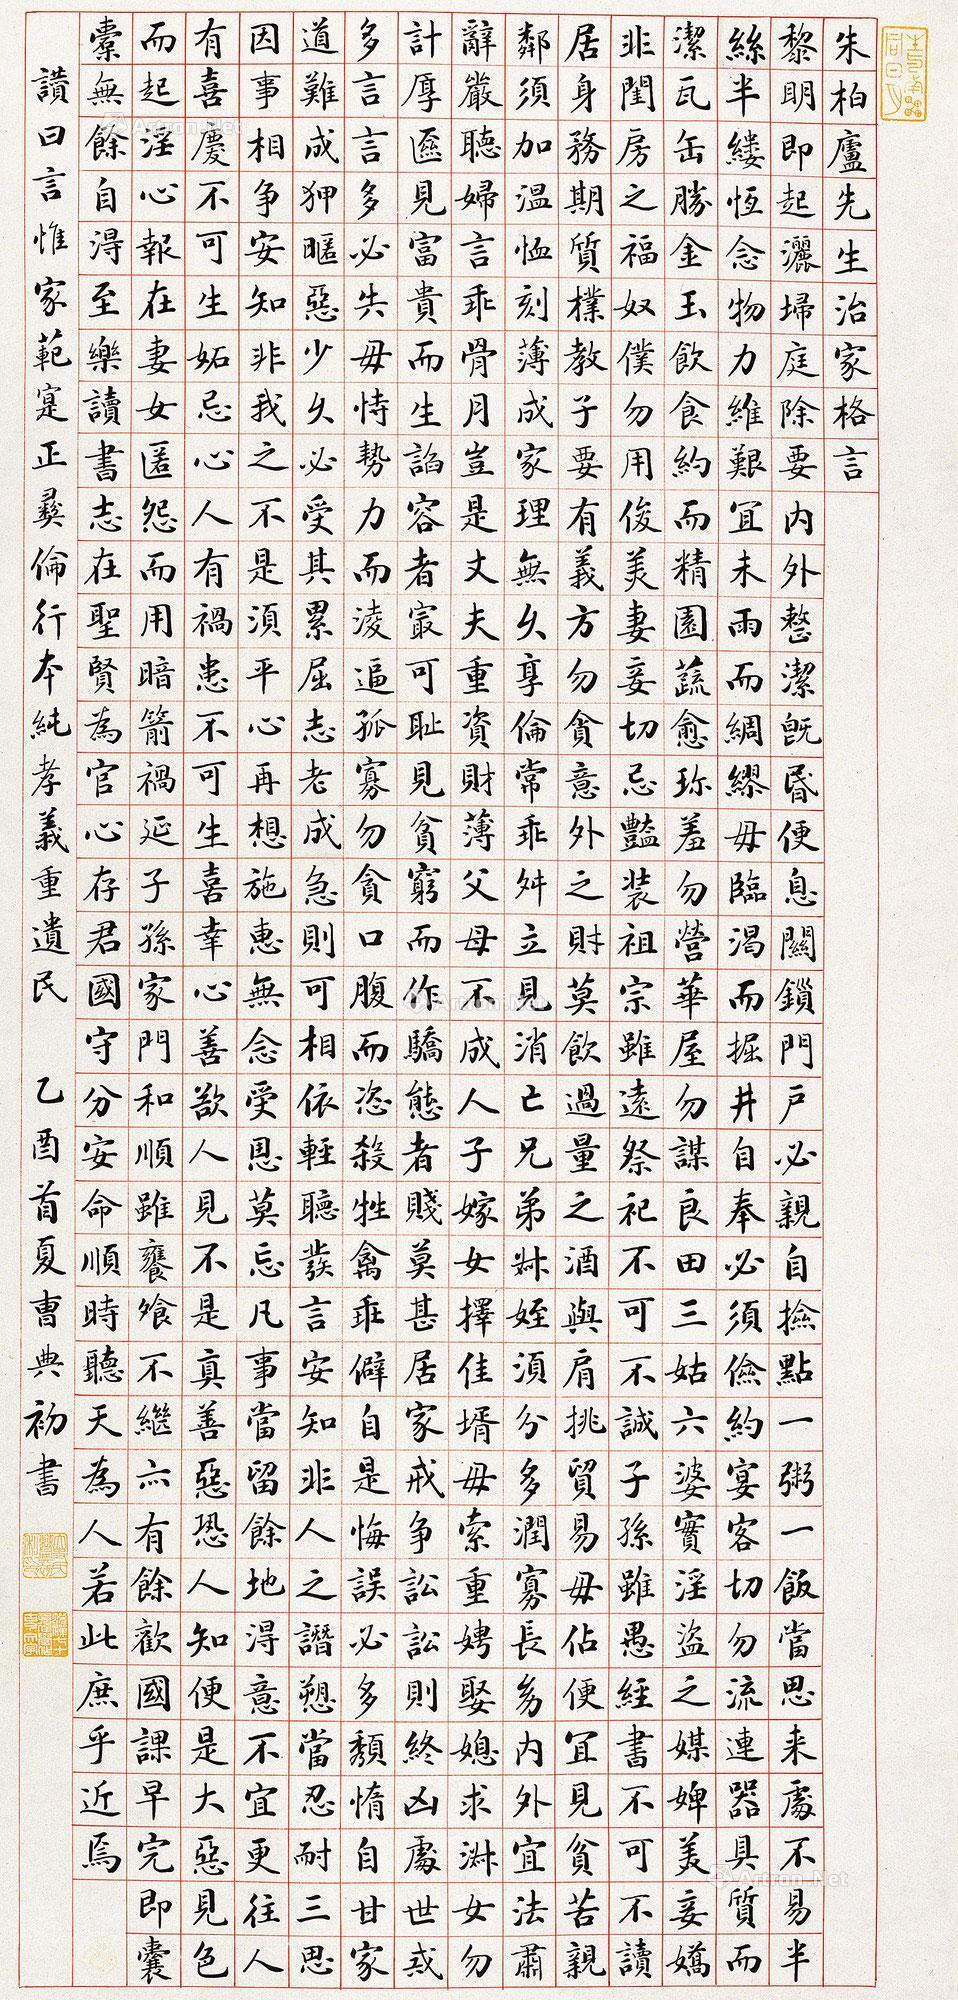 朱柏廬先生治家格言
黎明即起灑埽庭除要內外整潔旣昏便息關鎖門戶必親自撿點一粥一飯當思來處不易半
絲半縷恆念物力維艱宜未雨而綢繆毋臨渴而掘井自奉必須儉約宴客切勿流連器具質而
潔瓦缶勝金玉飲食約而精園蔬愈珎羞勿營華屋勿謀良田三姑六婆實淫盜之媒婢美妾嬌
非閨房之福奴僕勿用俊美妻妾切忌豔裝祖宗雖遠祭祀不可不誠子孫雖愚經書不可不讀
居身務期質樸教子要有義方勿貪意外之財莫飲過量之酒與肩挑貿易毋佔便宜見貧苦親
鄰須加溫恤刻薄成家理無久享倫常乖舛立見消亡兄弟叔姪須分多潤寡長幼內外宜法肅
辭嚴聽婦言乖骨月豈是丈夫重資財薄父母不成人子嫁女擇佳壻毋索重娉娶媳求淑女勿
計厚匳見富貴而生諂容者最可恥見貧窮而作驕態者賤莫甚居家戒争訟訟則終凶處世戒
多言言多必失毋恃勢力而淩逼孤寡勿貪口腹而恣殺牲禽乖僻自是悔誤必多頹惰自甘家
道難成狎暱惡少久必受其累屈志老成急則可相依輕聽發言安知非人之譖愬當忍耐三思
因事相争安知非我之不是須平心再想施惠無念受恩莫忘凡事當留餘地得意不宜更往人
有喜慶不可生妬忌心人有禍患不可生喜幸心善欲人見不是真善惡恐人知便是大惡見色
而起淫心報在妻女匿怨而用暗箭禍延子孫家門和順雖饔飧不繼亦有餘歡國課早完即囊
橐無餘自得至樂讀書志在聖賢為官心存君國守分安命順時聽天為人若此庶乎近焉
讚曰言惟家範寔正彝倫行本純孝義重遺民 乙酉首夏曹典初書
Artron.Net
Artron.Net
Artron.Net